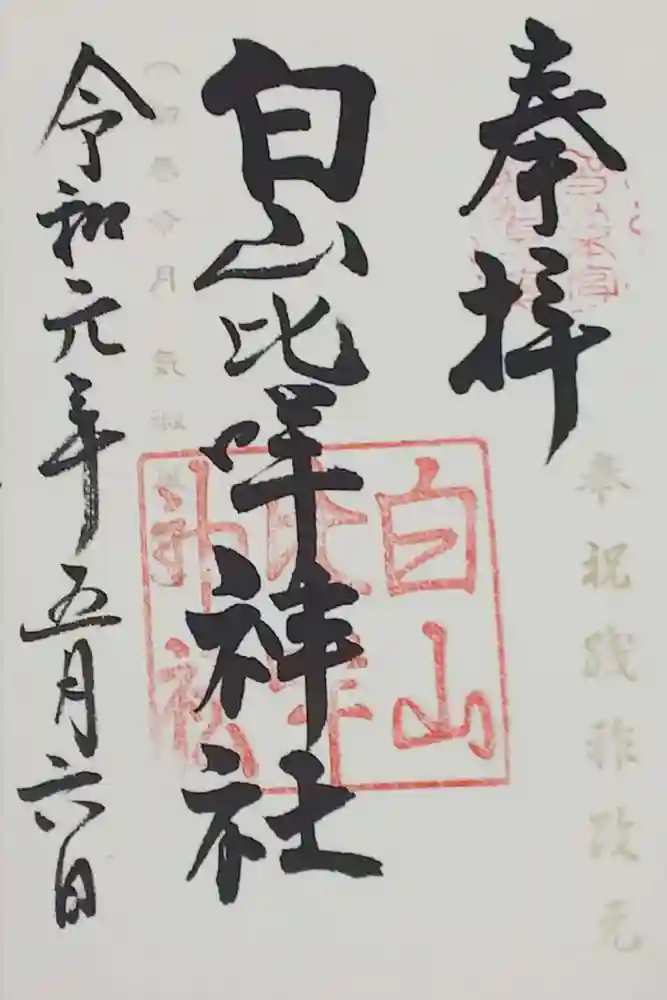 奉拝
奉祝践祚改元
白山比咩神社
白山
比咩
神社
令和元年五月六日